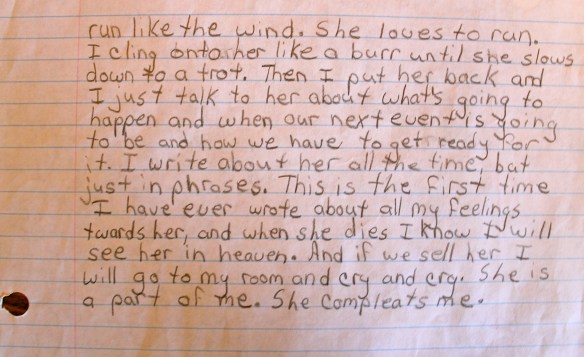 run like the wind. She loves to run.
I cling onto her like a burr until she slows
down to a trot. Then I put her back and
I just talk to her about what's going to
happen and when our next event is going
to be and how we have to get ready for
it. I write about her all the time, but
just in phrases. This is the first time
I have ever wrote about all my feelings
twards her, and when she dies I know I will
see her in heaven. And if we sell her I
will go to my room and cry and cry. She is
a part of me. She compleats me.